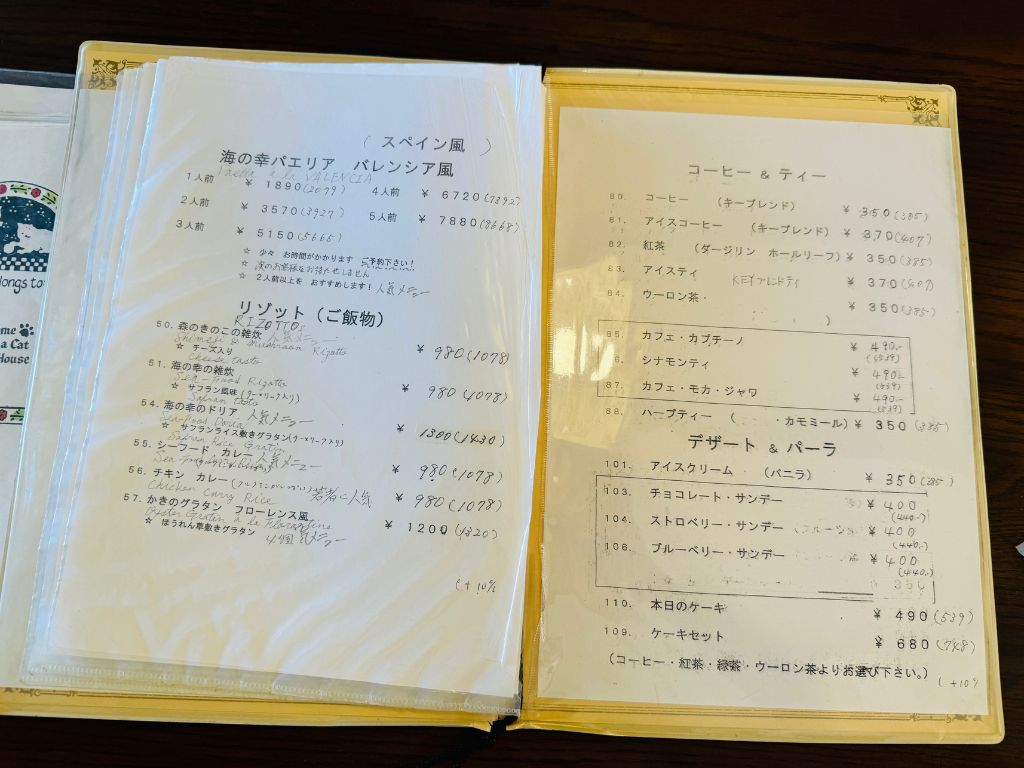 longs to:
me
a Cat
House
( スペイン風 )
海の幸パエリア バレンシア風
Paella a la VALENCIA
1人前 ¥ 1890(2079) 4人前 ¥ 6720(7392)
2人前 ¥ 3570(3927) 5人前 ¥ 7880(8668)
3人前 ¥ 5150(5665)
☆ 少々 お時間がかかります 予約下さい!
☆ 次のお客様をお待たせしません
☆ 2人前以上を おすすめします! 人気メニュー
リゾット(ご飯物)
RIZOTTOS
50. 森のきのこの雑炊 人気メニュー ¥ 980(1078)
Shimeji & Mushroom Rigotto
☆ チーズ入り
Cheese taste
51. 海の幸の雑炊 ¥ 980(1078)
Sea-food Rigotto
☆ サフラン風味(ターメリック入り)
Safran taste
54. 海の幸のドリア 人気メニュー ¥ 1300(1430)
Sea-food Doria
☆ サフランライス敷きグラタン(ターメリック入り)
Safran Rice Gratin
55. シーフード カレー 人気メニュー ¥ 980(1078)
56. チキン カレー 若者に人気 ¥ 980(1078)
Chicken Curry Rice
57. かきのグラタン フローレンス風 ¥ 1200(1320)
Oyster Gratin a la Florentine
☆ ほうれん草敷きグラタン 4個 人気メニュー
(+10%
コーヒー & ティー
80. コーヒー (キーブレンド) ¥ 350(385)
81. アイスコーヒー (キーブレンド) ¥ 370(407)
82. 紅茶 (ダージリン ホールリーフ) ¥ 350(385)
83. アイスティ KEYブレンドティ ¥ 370(407)
84. ウーロン茶・ ¥ 350(385)
)
85. カフェ・カプチーノ ¥ 490.-
(539)
86. シナモンティ ¥ 490.-
(539)
87. カフェ・モカ・ジャワ ¥ 490.-
(539)
88. ハーブティー ( カモミール) ¥ 350(385)
デザート & パーラ
101. アイスクリーム (バニラ) ¥ 350(385)
103. チョコレート・サンデー ¥ 400
(440.-)
104. ストロベリー・サンデー ¥ 400
(440.-)
106. ブルーベリー・サンデー ¥ 400
(440.-)
110. 本日のケーキ ¥ 490(539)
109. ケーキセット ¥ 680(748)
(コーヒー・紅茶・緑茶・ウーロン茶よりお選び下さい。)
(+10%